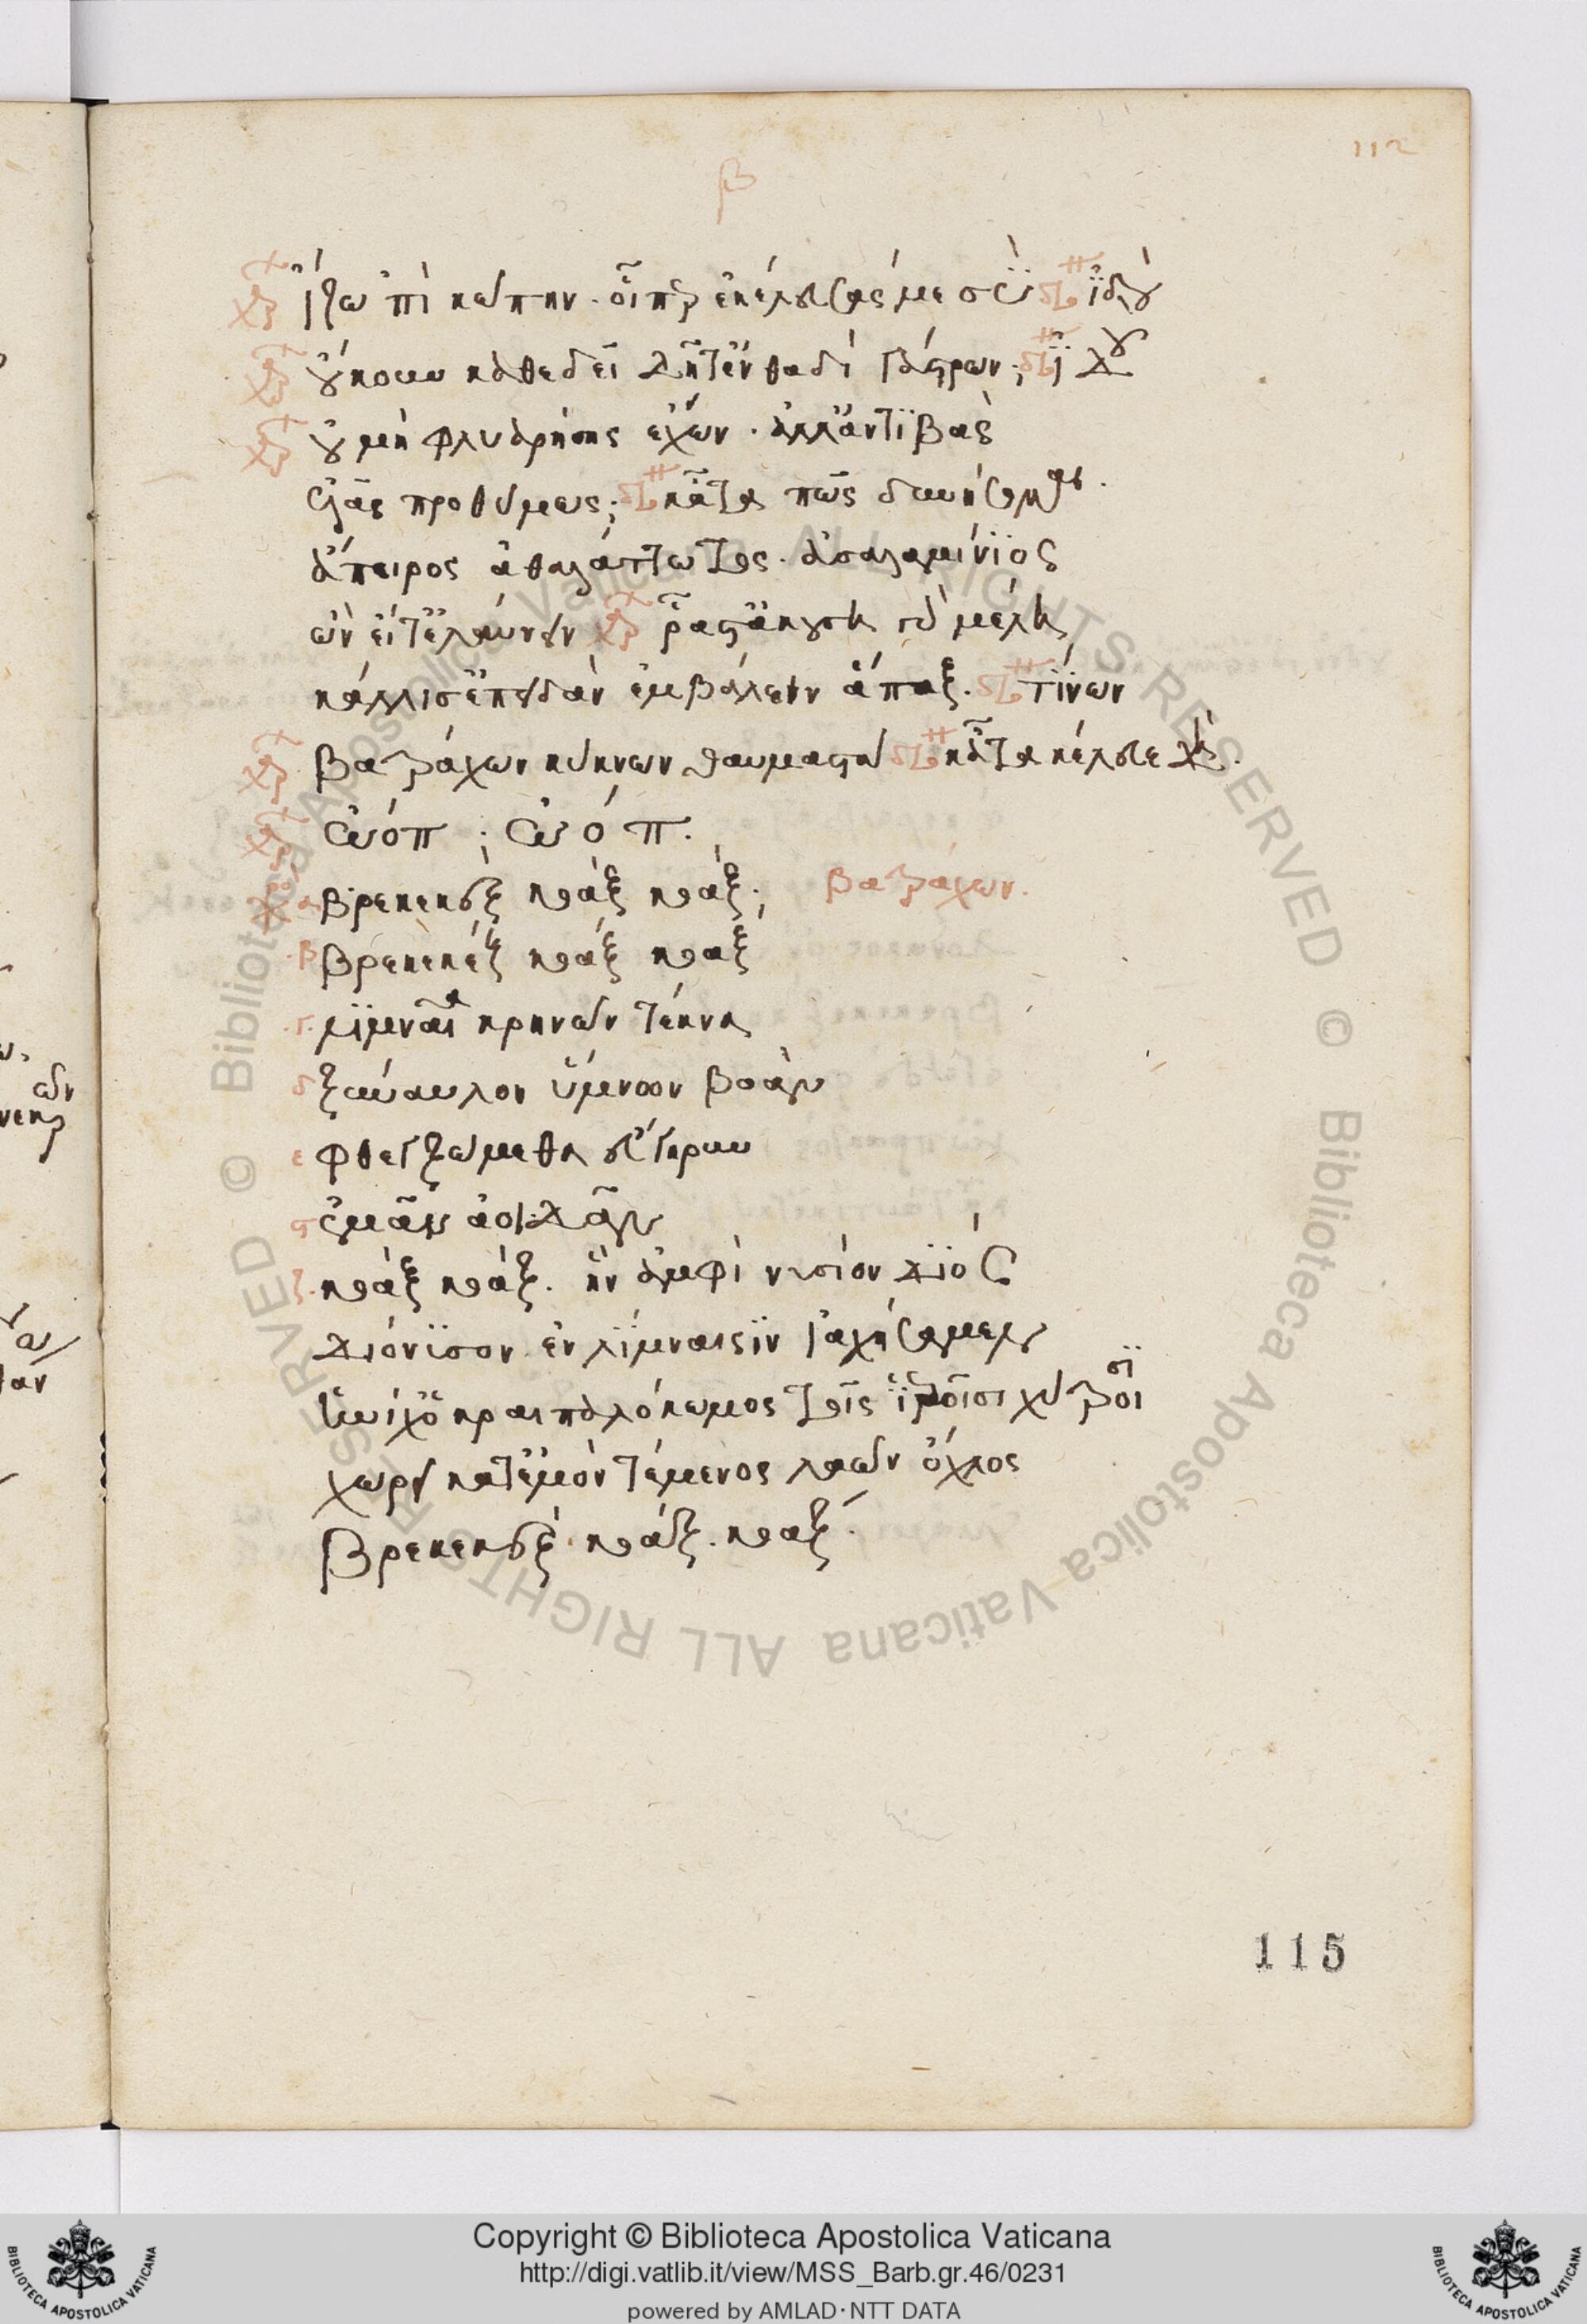 112
β
ἵζω ᾿πὶ κώπην. οἷπερ ἐκέλευσάς με σύ ἰδού
οὔκουν καθεδεῖ δῆτ' ἐνθαδὶ γάστρων; ἰδού
οὐ μὴ φλυαρήσεις ἔχων. ἀλλ' ἀντιβὰς
ἐλᾷς προθύμως; κᾆτα πῶς δυνήσομαι.
ἄπειρος ἀθαλάττωτος. ἀσαλαμίνιος
ὢν εἶτ' ἐλαύνειν ῥᾷστ' ἀκούσει γὰρ μέλη
κάλλιστ' ἐπειδὰν ἐμβάλῃς ἅπαξ. τίνων
βατράχων κύκνων θαυμαστά κᾆτα κέλευε δή.
ὠόπ; ὠόπ.
α βρεκεκεκὲξ κοὰξ κοάξ; βατράχων.
β βρεκεκεκὲξ κοὰξ κοάξ
γ. λιμναῖα κρηνῶν τέκνα
δ ξύναυλον ὕμνων βοὰν
ε φθεγξώμεθα εὔγηρυν
ς ἐμὰν ἀοιδὰν
ζ. κοὰξ κοάξ. ἣν ἀμφὶ νυσήιον διὸς
διόνυσον ἐν λίμναισιν ἰαχήσαμεν
ἡνίχ' ὁ κραιπαλόκωμος τοῖς ἱεροῖσι χύτροισι
χωρεῖ κατ' ἐμὸν τέμενος λαῶν ὄχλος
βρεκεκεκὲξ. κοάξ. κοάξ.
115
Copyright © Biblioteca Apostolica Vaticana
http://digi.vatlib.it/view/MSS_Barb.gr.46/0231
powered by AMLAD·NTT DATA